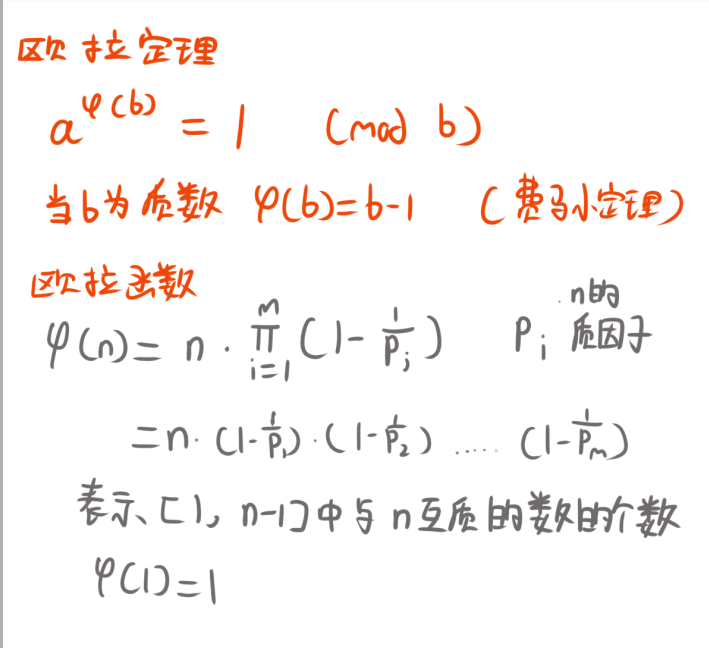 欧拉定理
a^φ(b) = 1 (mod b)
当b为质数 φ(b)=b-1 (费马小定理)
欧拉函数
φ(n) = n · ∏_{i=1}^{m} (1 - 1/p_i) P_i n的质因子
=n · (1-1/p_1) · (1-1/p_2) ..... (1-1/p_m)
表示、[1, n-1]中与n互质的数的个数
φ(1)=1